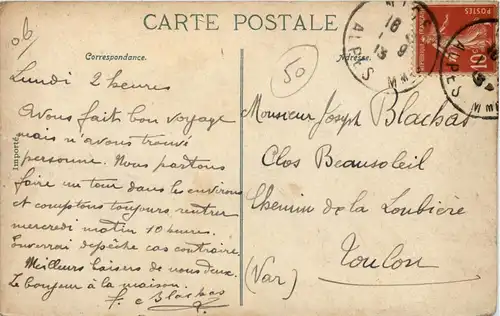 06/
CARTE POSTALE
Correspondance.
Adresse.
50
POSTES
10
ALPES
ALPES
Importé
Lundi 2 heures
Avons fait bon voyage
mais n'avons trouvé
personne. Nous partons
faire un tour dans les environs
et comptons toujours rentrer
mercredi matin 10 heures.
Enverrai depêche cas contraire.
Meilleurs baisers de nous deux.
Le bonjour à la maison.
Blachas
Monsieur Joseph Blachas
Clos Beausoleil
Chemin de la Loubière
Toulon
(Var)